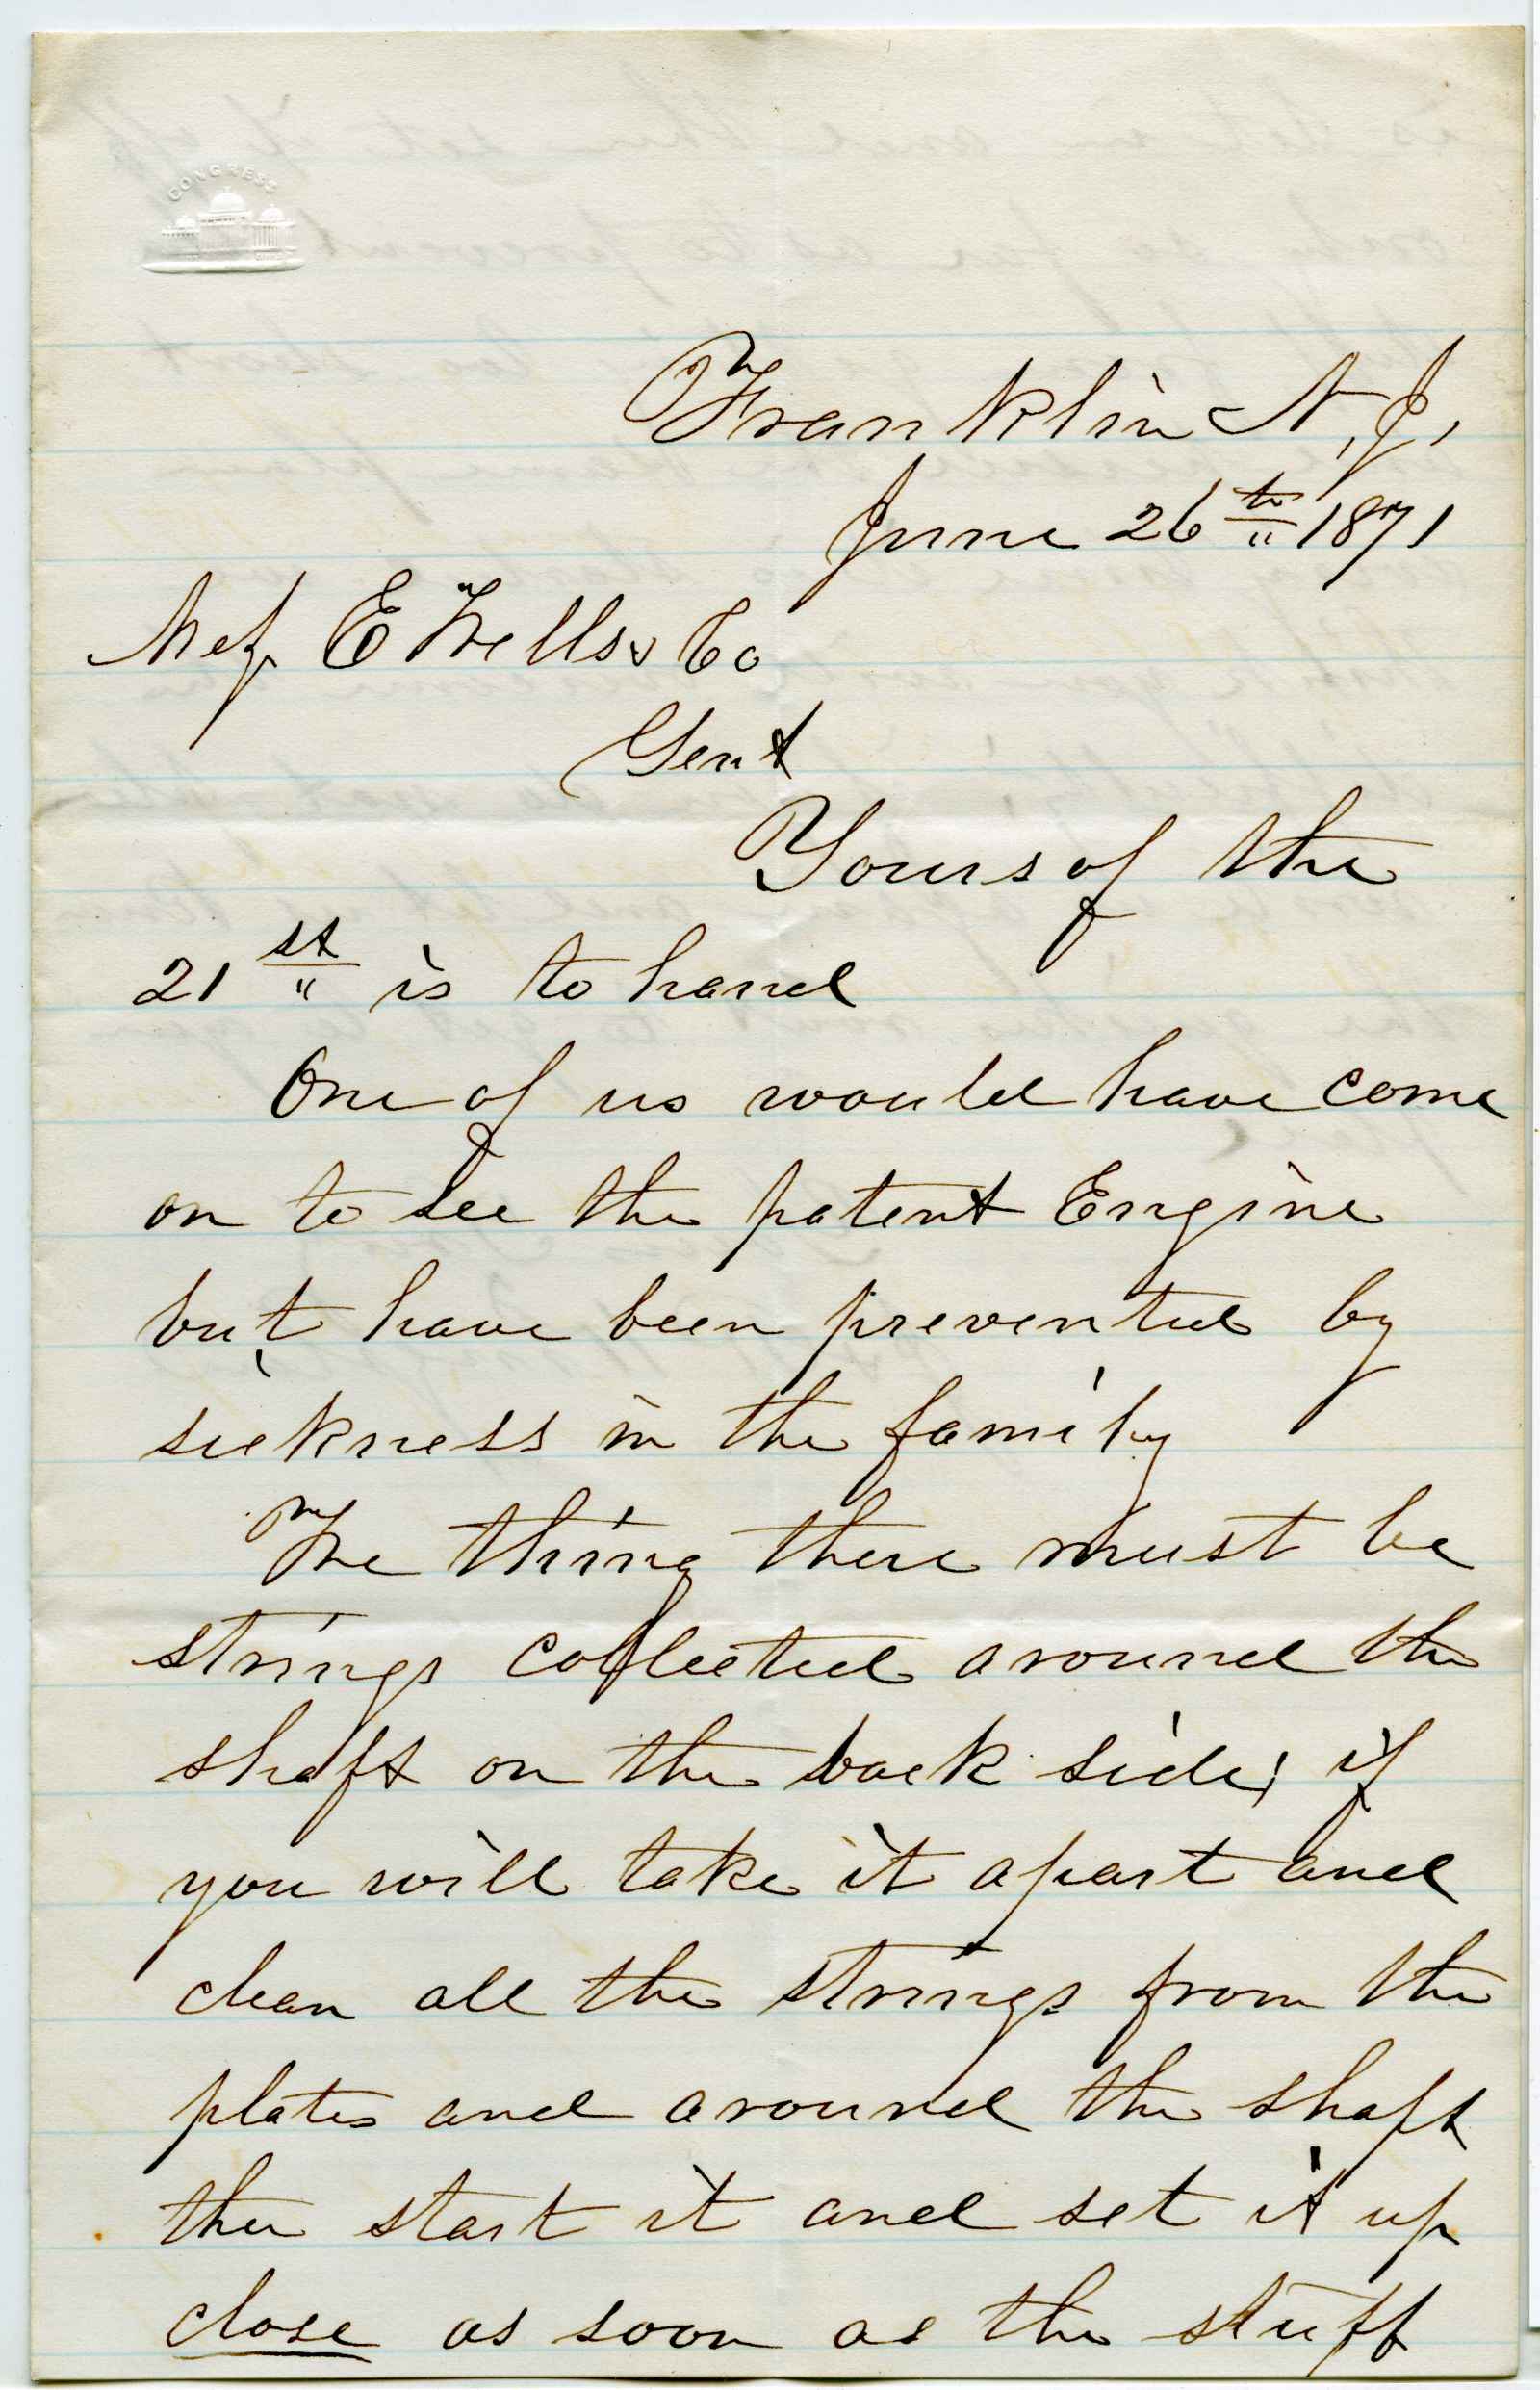 CONGRESS
Franklin N,J,
June 26th 1871
Mess E Wells & Co
Gent
Yours of the
21st is to hand
One of us would have come
on to see the patent Engine
but have been prevented by
sickness in the family
We thing there must be
strings collected around the
shaft on the back side; if
you will take it apart and
clean all the strings from the
plates and around the shaft
then start it and set it up
close as soon as the stuff